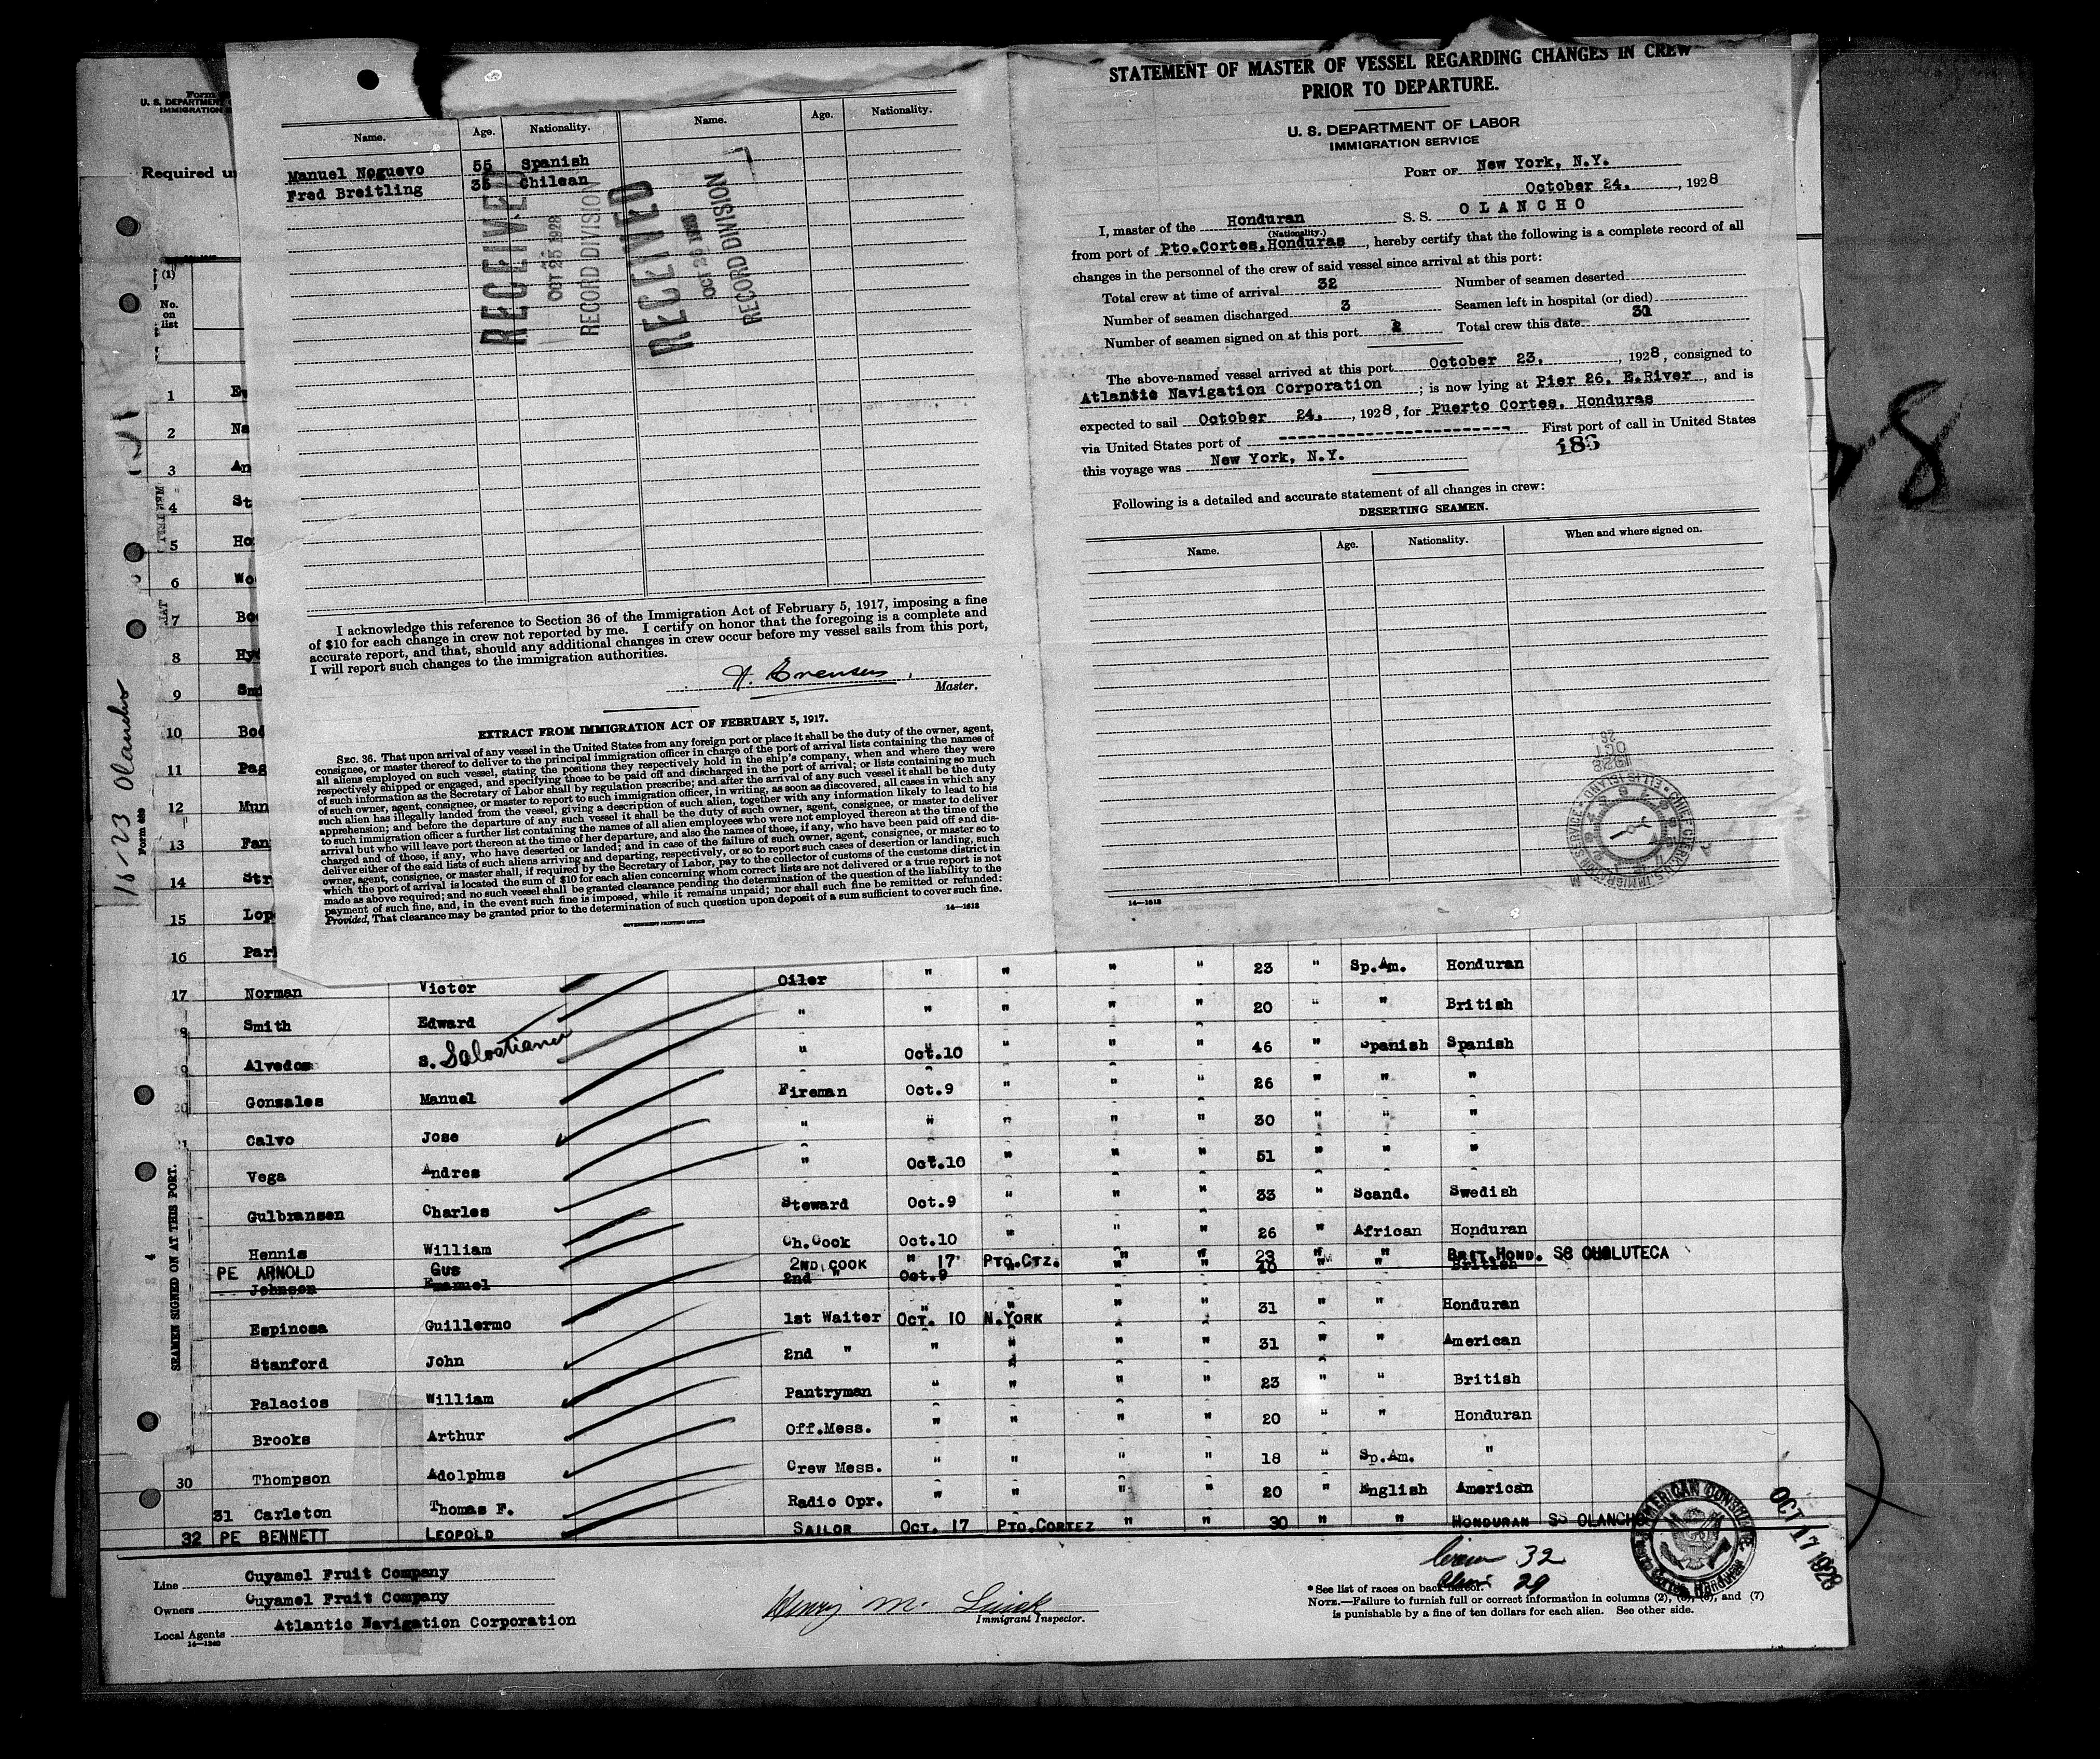 Form
U. S. DEPARTMENT
IMMIGRATION
Required
(1)
No.
on
list
1
2 Na
3 An
4 St
5 Ho
6 Wo
7
8 Hy
9 Smi
10 Bod
11 Pag
12 Mun
13 Fan
14 Str
15 Lop
16
Form
Name. Age. Nationality. Name. Age. Nationality.
Manuel Noguevo 55 Spanish
Fred Breitling 35 Chilean
RECEIVED
OCT 25 1928
RECORD DIVISION
RECEIVED
RECORD DIVISION
I acknowledge this reference to Section 36 of the Immigration Act of February 5, 1917, imposing a fine
of $10 for each change in crew not reported by me. I certify on honor that the foregoing is a complete and
accurate report, and that, should any additional changes in crew occur before my vessel sails from this port,
I will report such changes to the immigration authorities.
Master.
EXTRACT FROM IMMIGRATION ACT OF FEBRUARY 5, 1917.
SEC. 36. That upon arrival of any vessel in the United States from any foreign port or place it shall be the duty of the owner, agent,
consignee, or master thereof to deliver to the principal immigration officer in charge of the port of arrival lists containing the names of
all aliens employed on such vessel, stating the positions they respectively hold in the ship's company, when and where they were
respectively shipped or engaged, and specifying those to be paid off and discharged in the port of arrival; or lists containing so much
of such information as the Secretary of Labor shall by regulation prescribe; and after the arrival of any such vessel it shall be the duty
of such owner, agent, consignee, or master to report to such immigration officer, in writing, as soon as discovered, all cases in which any
such alien has illegally landed from the vessel, giving a description of such alien, together with any information likely to lead to his
apprehension; and before the departure of any such vessel it shall be the duty of such owner, agent, consignee, or master to deliver
to such immigration officer a further list containing the names of all alien employees who were not employed thereon at the time of the
arrival but who will leave port thereon at the time of her departure, and also the names of those, if any, who have been paid off and dis-
charged and of those, if any, who have deserted or landed; and in case of the failure of such owner, agent, consignee, or master so to
deliver either of the said lists of such aliens arriving and departing, respectively, or so to report such cases of desertion or landing, such
owner, agent, consignee, or master shall, if required by the Secretary of Labor, pay to the collector of customs of the customs district in
which the port of arrival is located the sum of $10 for each alien concerning whom correct lists are not delivered or a true report is not
made as above required; and no such vessel shall be granted clearance pending the determination of the question of the liability to the
payment of such fine, and, in the event such fine is imposed, while it remains unpaid; nor shall such fine be remitted or refunded:
Provided, That clearance may be granted prior to the determination of such question upon deposit of a sum sufficient to cover such fine.
GOVERNMENT PRINTING OFFICE 14—1618
STATEMENT OF MASTER OF VESSEL REGARDING CHANGES IN CREW
PRIOR TO DEPARTURE.
U. S. DEPARTMENT OF LABOR
IMMIGRATION SERVICE
PORT OF New York, N.Y.
October 24. , 1928
I, master of the Honduran S. S. OLANCHO
(Nationality.)
from port of Pto.Cortes.Honduras , hereby certify that the following is a complete record of all
changes in the personnel of the crew of said vessel since arrival at this port:
Total crew at time of arrival 32 Number of seamen deserted
Number of seamen discharged 3 Seamen left in hospital (or died)
Number of seamen signed on at this port 2 Total crew this date 31
The above-named vessel arrived at this port October 23. , 1928, consigned to
Atlantic Navigation Corporation ; is now lying at Pier 26. E.River , and is
expected to sail October 24. , 1928, for Puerto Cortes. Honduras
via United States port of ---------------------- First port of call in United States
this voyage was New York, N.Y. 183
Following is a detailed and accurate statement of all changes in crew:
DESERTING SEAMEN.
Name. Age. Nationality. When and where signed on.
14—1618
17 Norman Victor Oiler " " " " 23 " Sp.Am. Honduran
Smith Edward " " " " " 20 " " British
Alvedos s. Salostiano " Oct.10 " " " 46 " Spanish Spanish
Gonzales Manuel Fireman Oct.9 " " " 26 " " "
Calvo Jose " " " " " 30 " " "
Vega Andres " Oct.10 " " " 51 " " "
Gulbransen Charles Steward Oct.9 " " " 33 " Scand. Swedish
Hennis William Ch.Cook Oct.10 " " " 26 " African Honduran
PE ARNOLD Gus 2ND COOK " 17 PTO.CTZ. " " 23 " " BRIT.HOND. SS CHOLUTECA
Johnson Emanuel 2nd " Oct.9 " " 40 " " British
Espinosa Guillermo 1st Waiter OCT. 10 N.YORK " " 31 " " Honduran
Stanford John 2nd " " " " " 31 " " American
Palacios William Pantryman " " " " 23 " " British
Brooks Arthur Off.Mess. " " " " 20 " " Honduran
30 Thompson Adolphus Crew Mess. " " " " 18 " Sp.Am. "
31 Carleton Thomas F. Radio Opr. " " " " 20 " English American
32 PE BENNETT LEOPOLD SAILOR OCT. 17 PTO.CORTEZ " " 30 " " HONDURAN SS OLANCHO
SEAMEN SIGNED ON AT THIS PORT.
4
Line Cuyamel Fruit Company
Owners Cuyamel Fruit Company
Local Agents Atlantic Navigation Corporation
14—1240
Immigrant Inspector.
Crew 32
29
*See list of races on back hereof.
NOTE.—Failure to furnish full or correct information in columns (2), (5), (6), and (7)
is punishable by a fine of ten dollars for each alien. See other side.
AMERICAN CONSULATE
OCT 17 1928